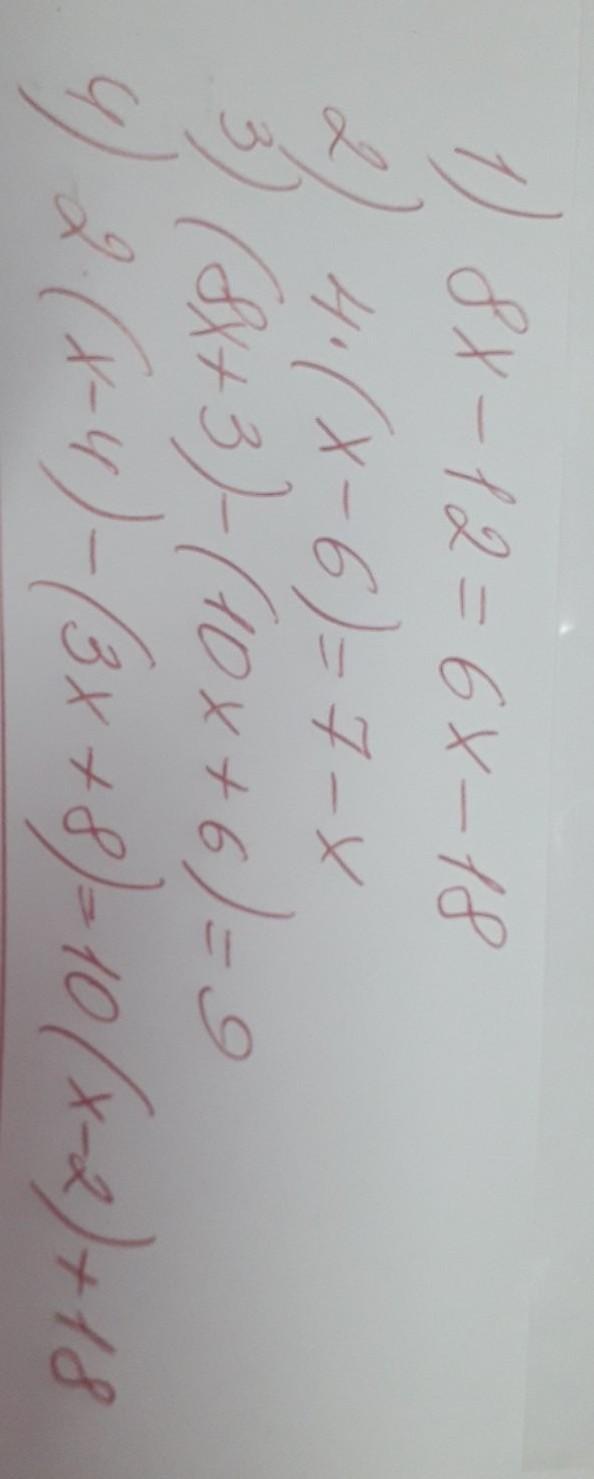 1) 8x - 12 = 6x - 18
2) 4·(x - 6) = 7 - x
3) (8x + 3) - (10x + 6) = 9
4) 2·(x - 4) - (3x + 8) = 10(x - 2) + 18